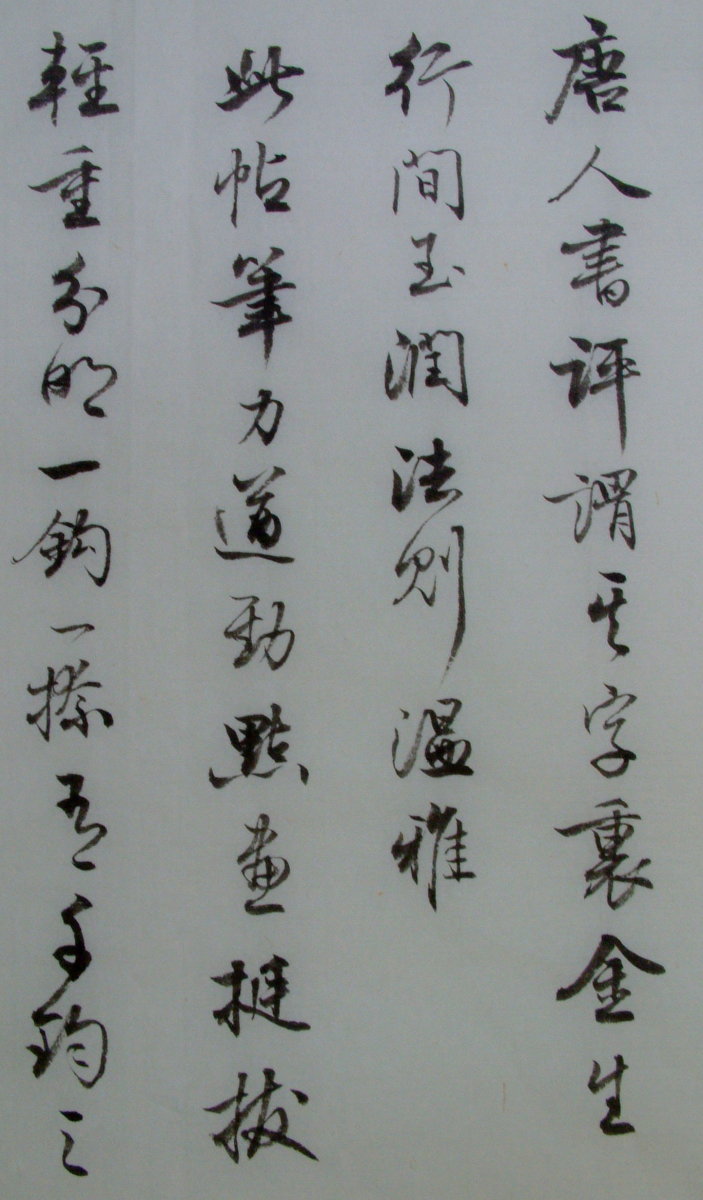 唐人書評謂其字裏金生
行間玉潤法則溫雅
此帖筆力遒勁點畫挺拔
輕重分明一鈎一捺有千鈞之